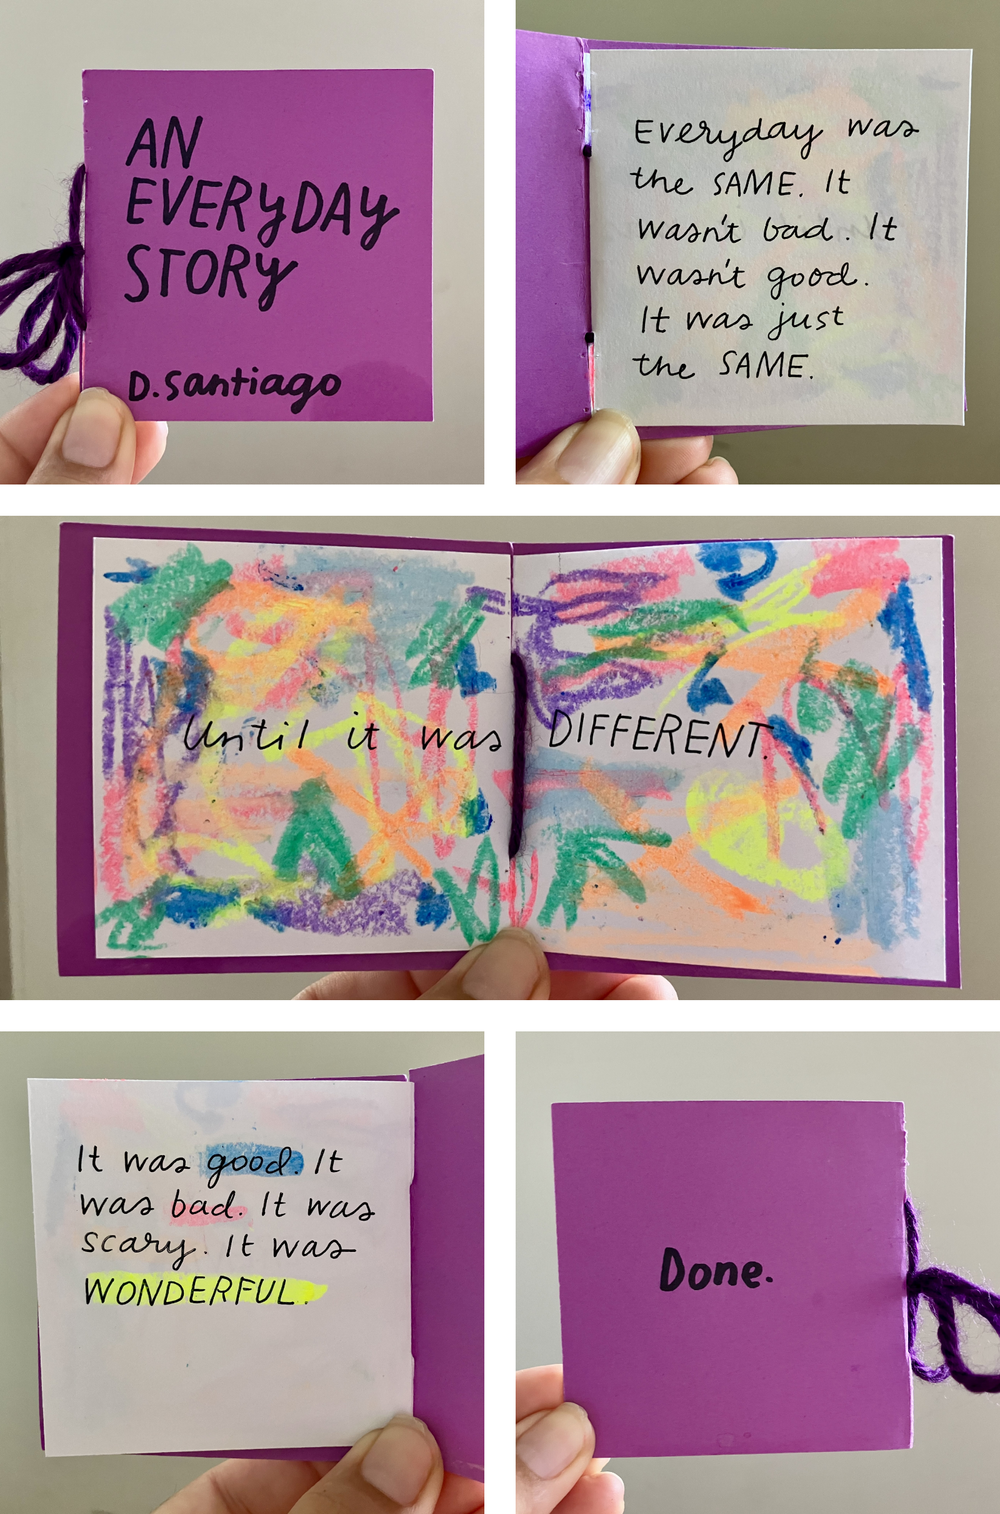 AN
EVERYDAY
STORY
D. Santiago
Everyday was
the SAME. It
wasn't bad. It
wasn't good.
It was just
the SAME.
Until it was DIFFERENT.
It was good. It
was bad. It was
scary. It was
WONDERFUL.
Done.